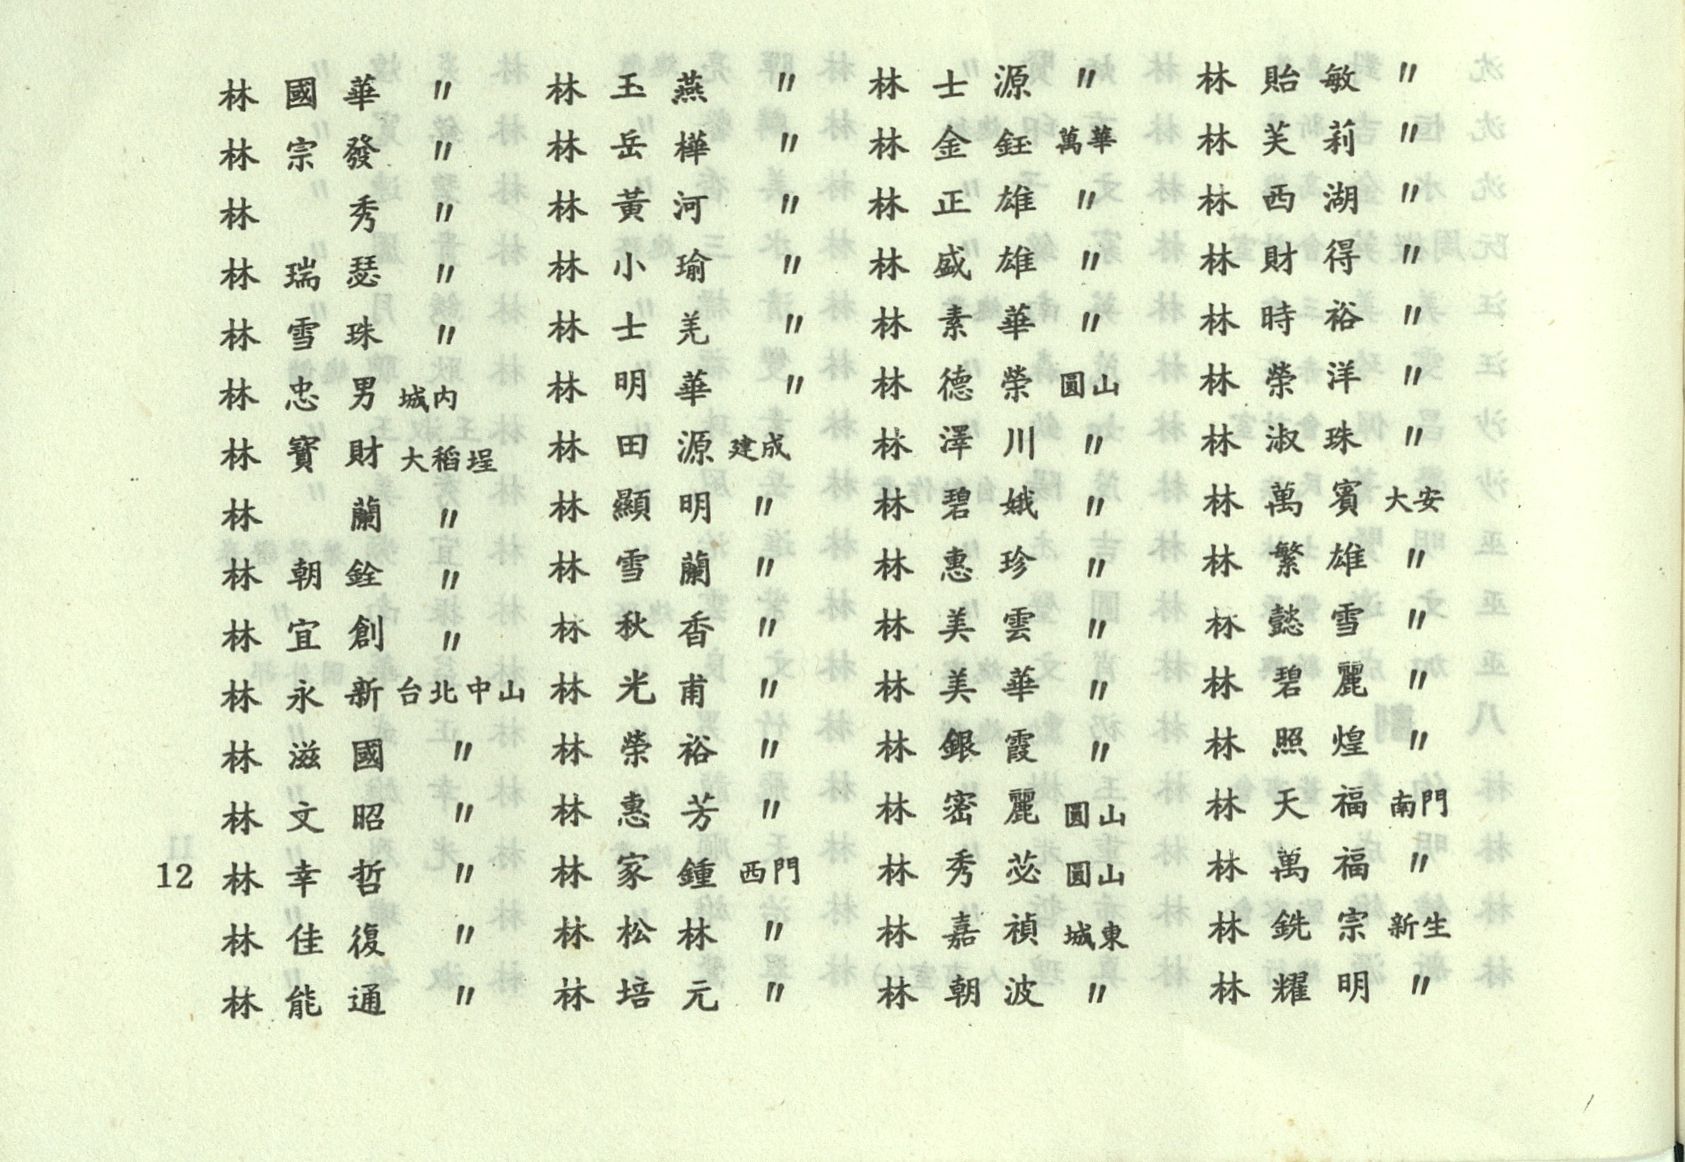 林國華 〃
林宗發 〃
林 秀 〃
林瑞瑟 〃
林雪珠 〃
林忠男 城內
林寶財 大稻埕
林 蘭 〃
林朝銓 〃
林宜創 〃
林永新 台北中山
林滋國 〃
林文昭 〃
12 林幸哲 〃
林佳復 〃
林能通 〃
林玉燕 〃
林岳樺 〃
林黃河 〃
林小瑜 〃
林士羌 〃
林明華 〃
林田源 建成
林顯明 〃
林雪蘭 〃
林秋香 〃
林光甫 〃
林榮裕 〃
林惠芳 〃
林家鍾 西門
林松林 〃
林培元 〃
林士源 〃
林金鈺 萬華
林正雄 〃
林盛雄 〃
林素華 〃
林德榮 圓山
林澤川 〃
林碧娥 〃
林惠珍 〃
林美雲 〃
林美華 〃
林銀霞 〃
林密麗 圓山
林秀苾 圓山
林嘉禎 城東
林朝波 〃
林貽敏 〃
林芙莉 〃
林西湖 〃
林財得 〃
林時裕 〃
林榮洋 〃
林淑珠 〃
林萬賓 大安
林繁雄 〃
林懿雪 〃
林碧麗 〃
林照煌 〃
林天福 南門
林萬福 〃
林銑宗 新生
林耀明 〃